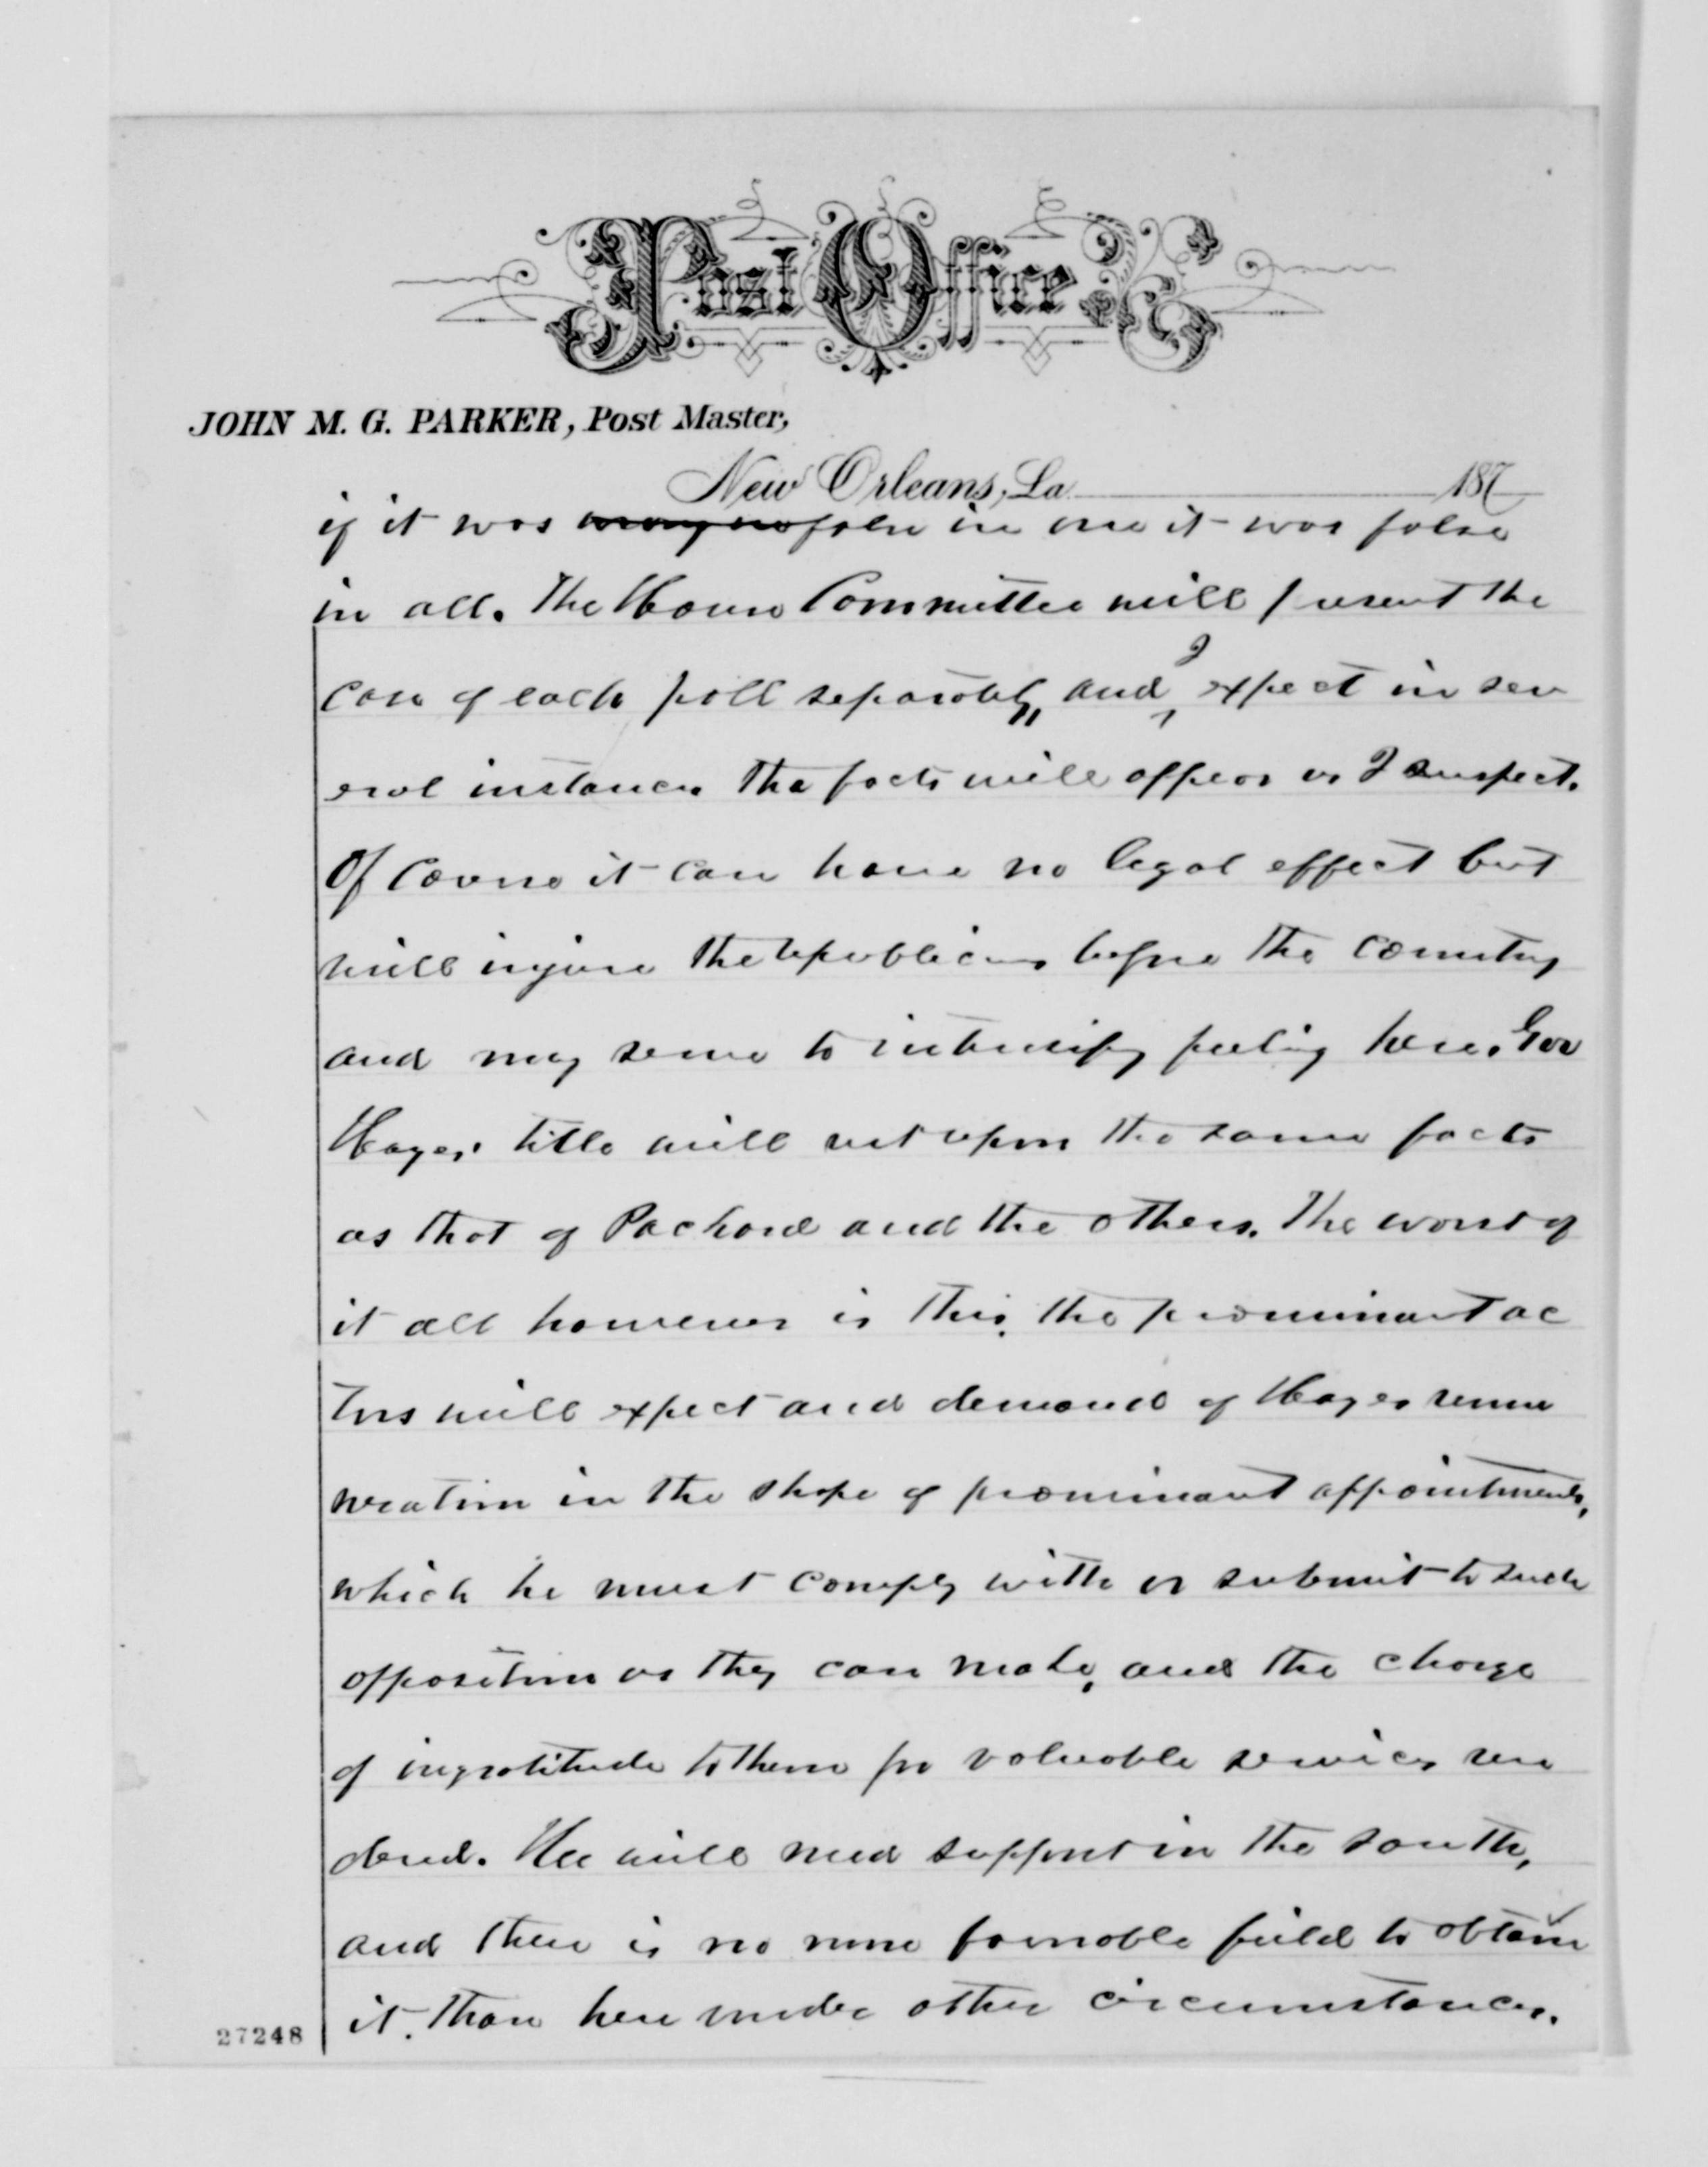 Post Office
JOHN M. G. PARKER, Post Master,
New Orleans, La. 187
if it was false in one it was false
in all. The House Committee will present the
case of each poll separately, and I expect in sev
eral instances the facts will appear as I suspect.
Of course it can have no legal effect but
will injure the republicans before the country
and may serve to intensify feeling here. Gov
Hayes' title will rest upon the same facts
as that of Packard and the others. The worst of
it all however is this, the prominant ac
tors will expect and demand of Hayes remu
neration in the shape of prominant appointments,
which he must comply with or submit to such
opposition as they can make, and the charge
of ingratitude to them for valuable services ren
dered. He will need support in the south,
and there is no more favorable field to obtain
it. than here under other circumstances.
27248